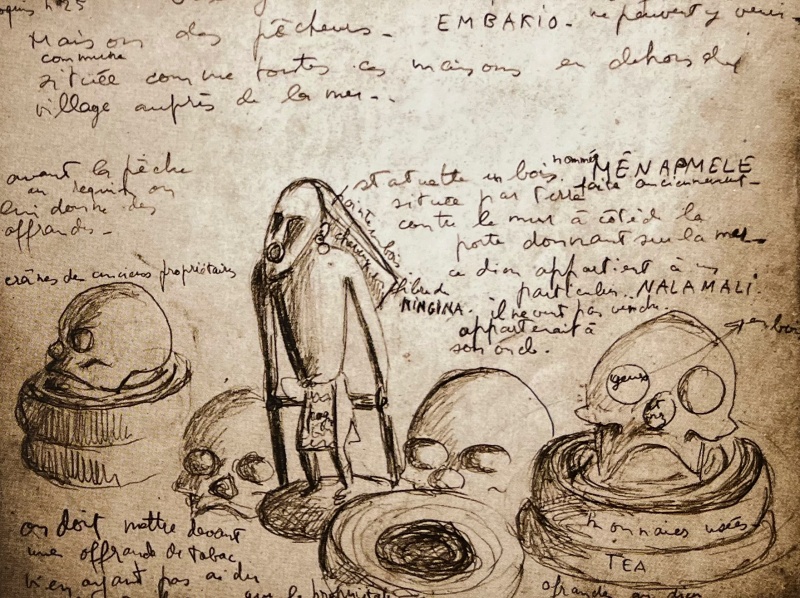 croquis n° 25
Maison des pêcheurs - EMBAKIO - ne peuvent y venir
commune
située comme toutes ces maisons en dehors du
village auprès de la mer -
avant la pêche
au requin on
lui donne des
offrandes -
crânes de anciens propriétaires
statuette en bois nommée MÊNAPMELE
située par terre faite anciennement -
contre le mur à côté de la
porte donnant sur la mer
ce dieu appartient à un
particulier. NALAMALI.
il ne veut pas vendre.
appartenait à
son oncle.
en bois
fibre de
KINGINA.
en bois
yeux
et
nez
monnaies usées
TEA
on doit mettre devant
une offrande de tabac
n'en ayant pas
que le propriétaire
offrande au dieu